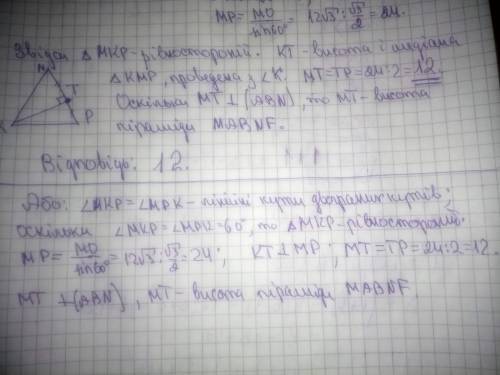 MP = MO/sin60° = 12√3 : √3/2 = 24.
Звідси △ MKP - рівносторонній. KT - висота і медіана
△ KMP, проведена з ∠K. MT = TP = 24:2 = 12.
Оскільки MT ⊥ (ABN), то MT - висота
піраміди MABNF.
M
T
K
P
Відповідь: 12.
Або: ∠MKP = ∠MPK - лінійні кути двогранних кутів;
оскільки ∠MKP = ∠MPK = 60°, то △ MKP - рівносторонній.
MP = MO/sin60° = 12√3 : √3/2 = 24; KT ⊥ MP; MT = TP = 24:2 = 12.
MT ⊥ (ABN), MT - висота піраміди MABNF.